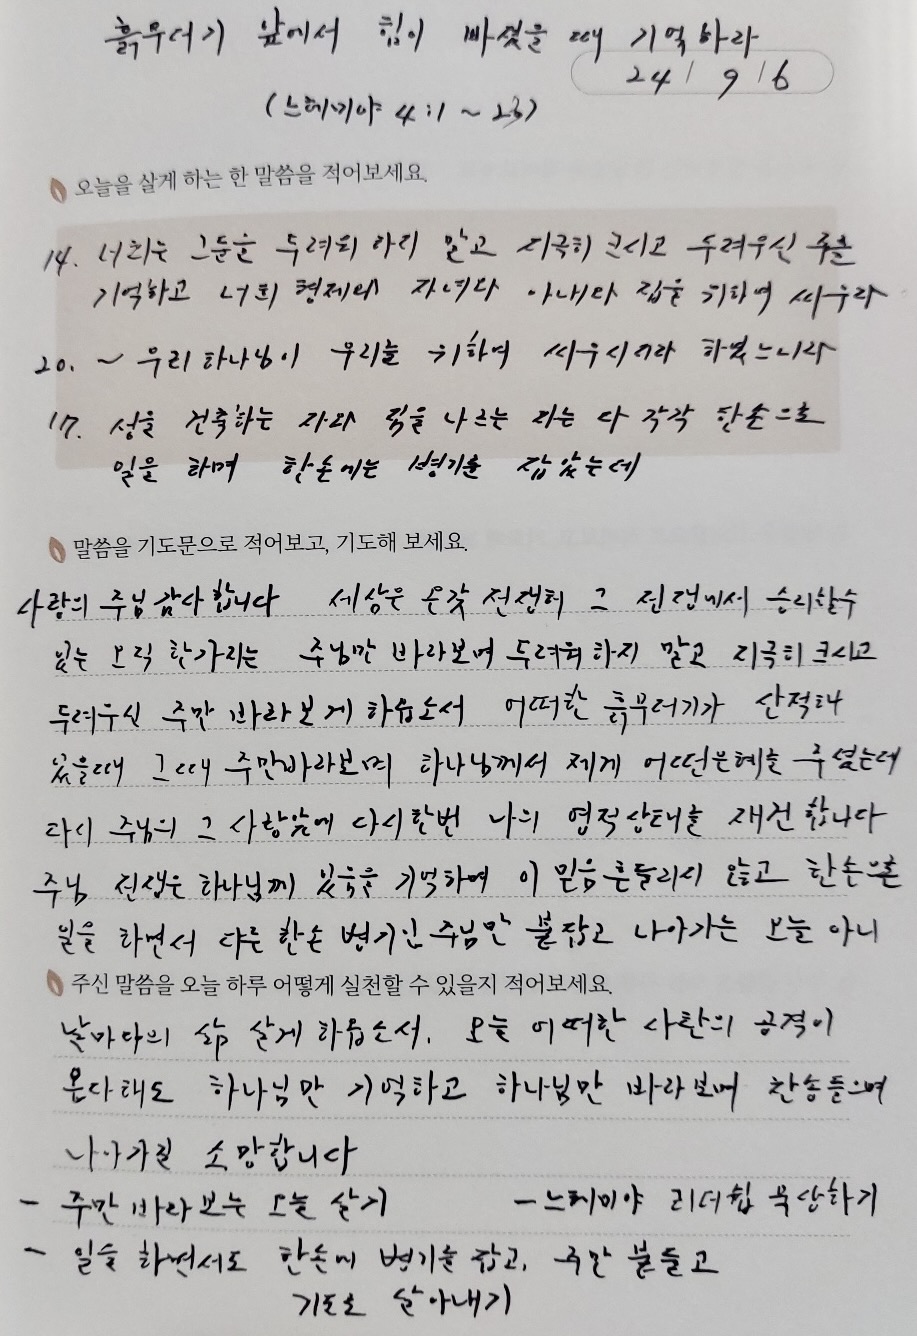 흙무더기 앞에서 힘이 빠졌을 때 기억하라
24 / 9 / 6
(느헤미야 4:1 ~ 23)
오늘을 살게 하는 한 말씀을 적어보세요.
14. 너희는 그들을 두려워 하지 말고 지극히 크시고 두려우신 주를
기억하고 너희 형제와 자녀와 아내와 집을 위하여 싸우라
20. ~ 우리 하나님이 우리를 위하여 싸우시리라 하였느니라
17. 성을 건축하는 자와 짐을 나르는 자는 다 각각 한손으로
일을 하며 한손에는 병기를 잡았는데
말씀을 기도문으로 적어보고, 기도해 보세요.
사랑의 주님 감사합니다 세상은 온갖 전쟁터 그 전쟁에서 승리할수
있는 오직 한가지는 주님만 바라보며 두려워하지 말고 지극히 크시고
두려우신 주만 바라보게 하옵소서 어떠한 흙무더기가 산적해
있을때 그때 주만바라보며 하나님께서 제게 어떤은혜를 주셨는데
다시 주님의 그 사랑앞에 다시한번 나의 영적상태를 재건합니다
주님 전쟁은 하나님께 있음을 기억하여 이 믿음 흔들리지 않고 한손으론
일을 하면서 다른 한손 병기인 주님만 붙잡고 나아가는 오늘 아니
주신 말씀을 오늘 하루 어떻게 실천할 수 있을지 적어보세요.
날마다의 삶 살게 하옵소서. 오늘 어떠한 사탄의 공격이
온다해도 하나님만 기억하고 하나님만 바라보며 찬송들으며
나아가길 소망합니다
- 주만 바라보는 오늘 살기 - 느헤미야 리더쉽 묵상하기
- 일을 하면서도 한손에 병기를 잡고, 주만 붙들고
기도로 살아내기